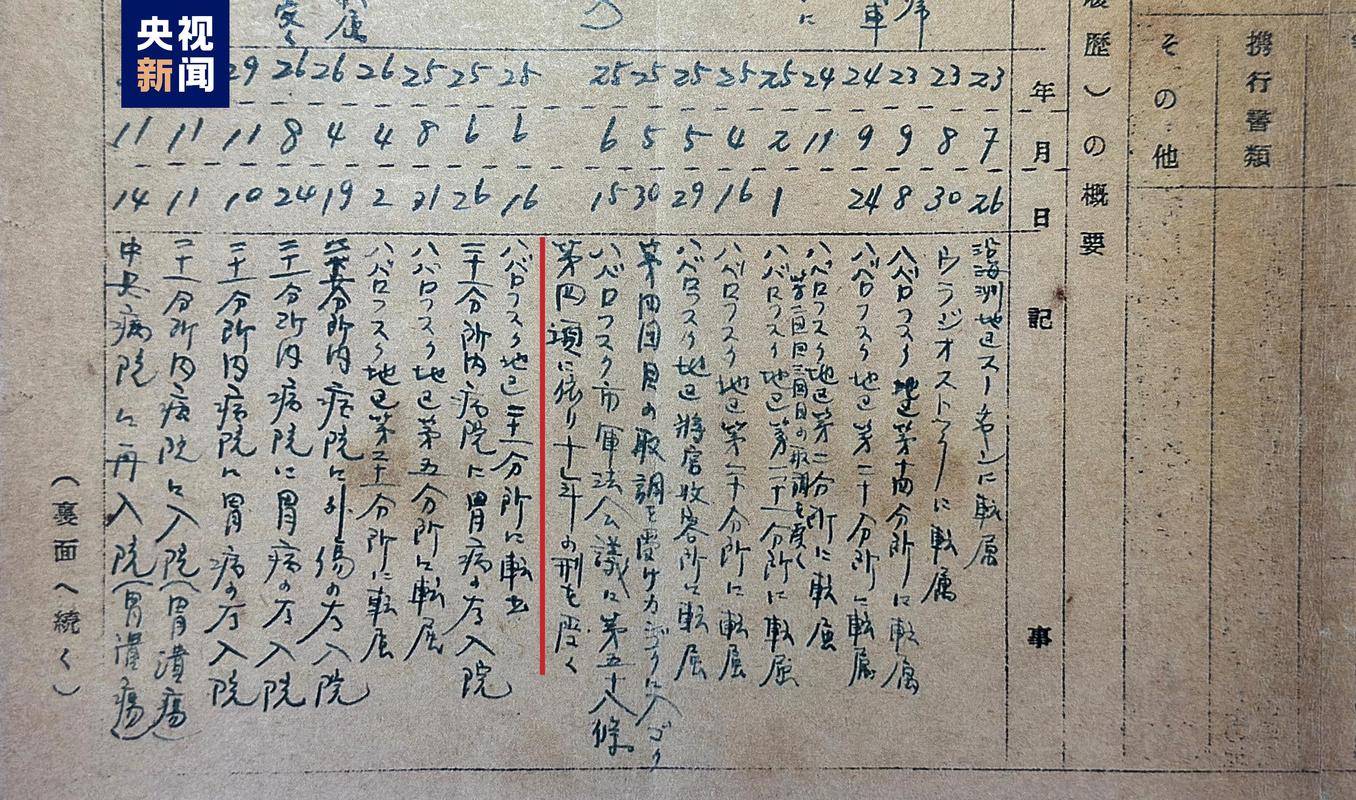 央视
新闻
携行書類
その他
歴）の概要
年
月
日
記
事
23 7 26 沿海洲地区スーチャンに転属
23 8 30 ウラジオストックに転属
23 9 8 ハバロフスク地区第十四分所に転属
24 9 24 ハバロフスク地区第二十分所に転属
24 11 ハバロフスク地区第二分所に転属
第二回目三回目の取調を受く
25 2 1 ハバロフスク地区第二十一分所に転属
25 4 16 ハバロフスク地区第二十分所に転属
25 5 29 ハバロフスク地区将官収容所に転属
25 5 30 第四回目の取調を受け
25 6 15 ハバロフスク市軍法会議に第五十八條
第四項に依り十七年の刑を受く
25 6 16 ハバロフスク地区二十一分所に転出
25 6 26 二十一分所内病院に胃病の為入院
25 8 21 ハバロフスク地区第五分所に転属
26 4 2 ハバロフスク地区第二十一分所に転属
26 4 19 分所内病院に外傷の為入院
26 8 24 二十一分所内病院に胃病の為入院
29 11 10 二十一分所内病院に胃病の為入院
11 11 二十一分所内病院に入院（胃潰瘍）
11 14 中央病院に再入院（胃潰瘍）
（裏面へ続く）